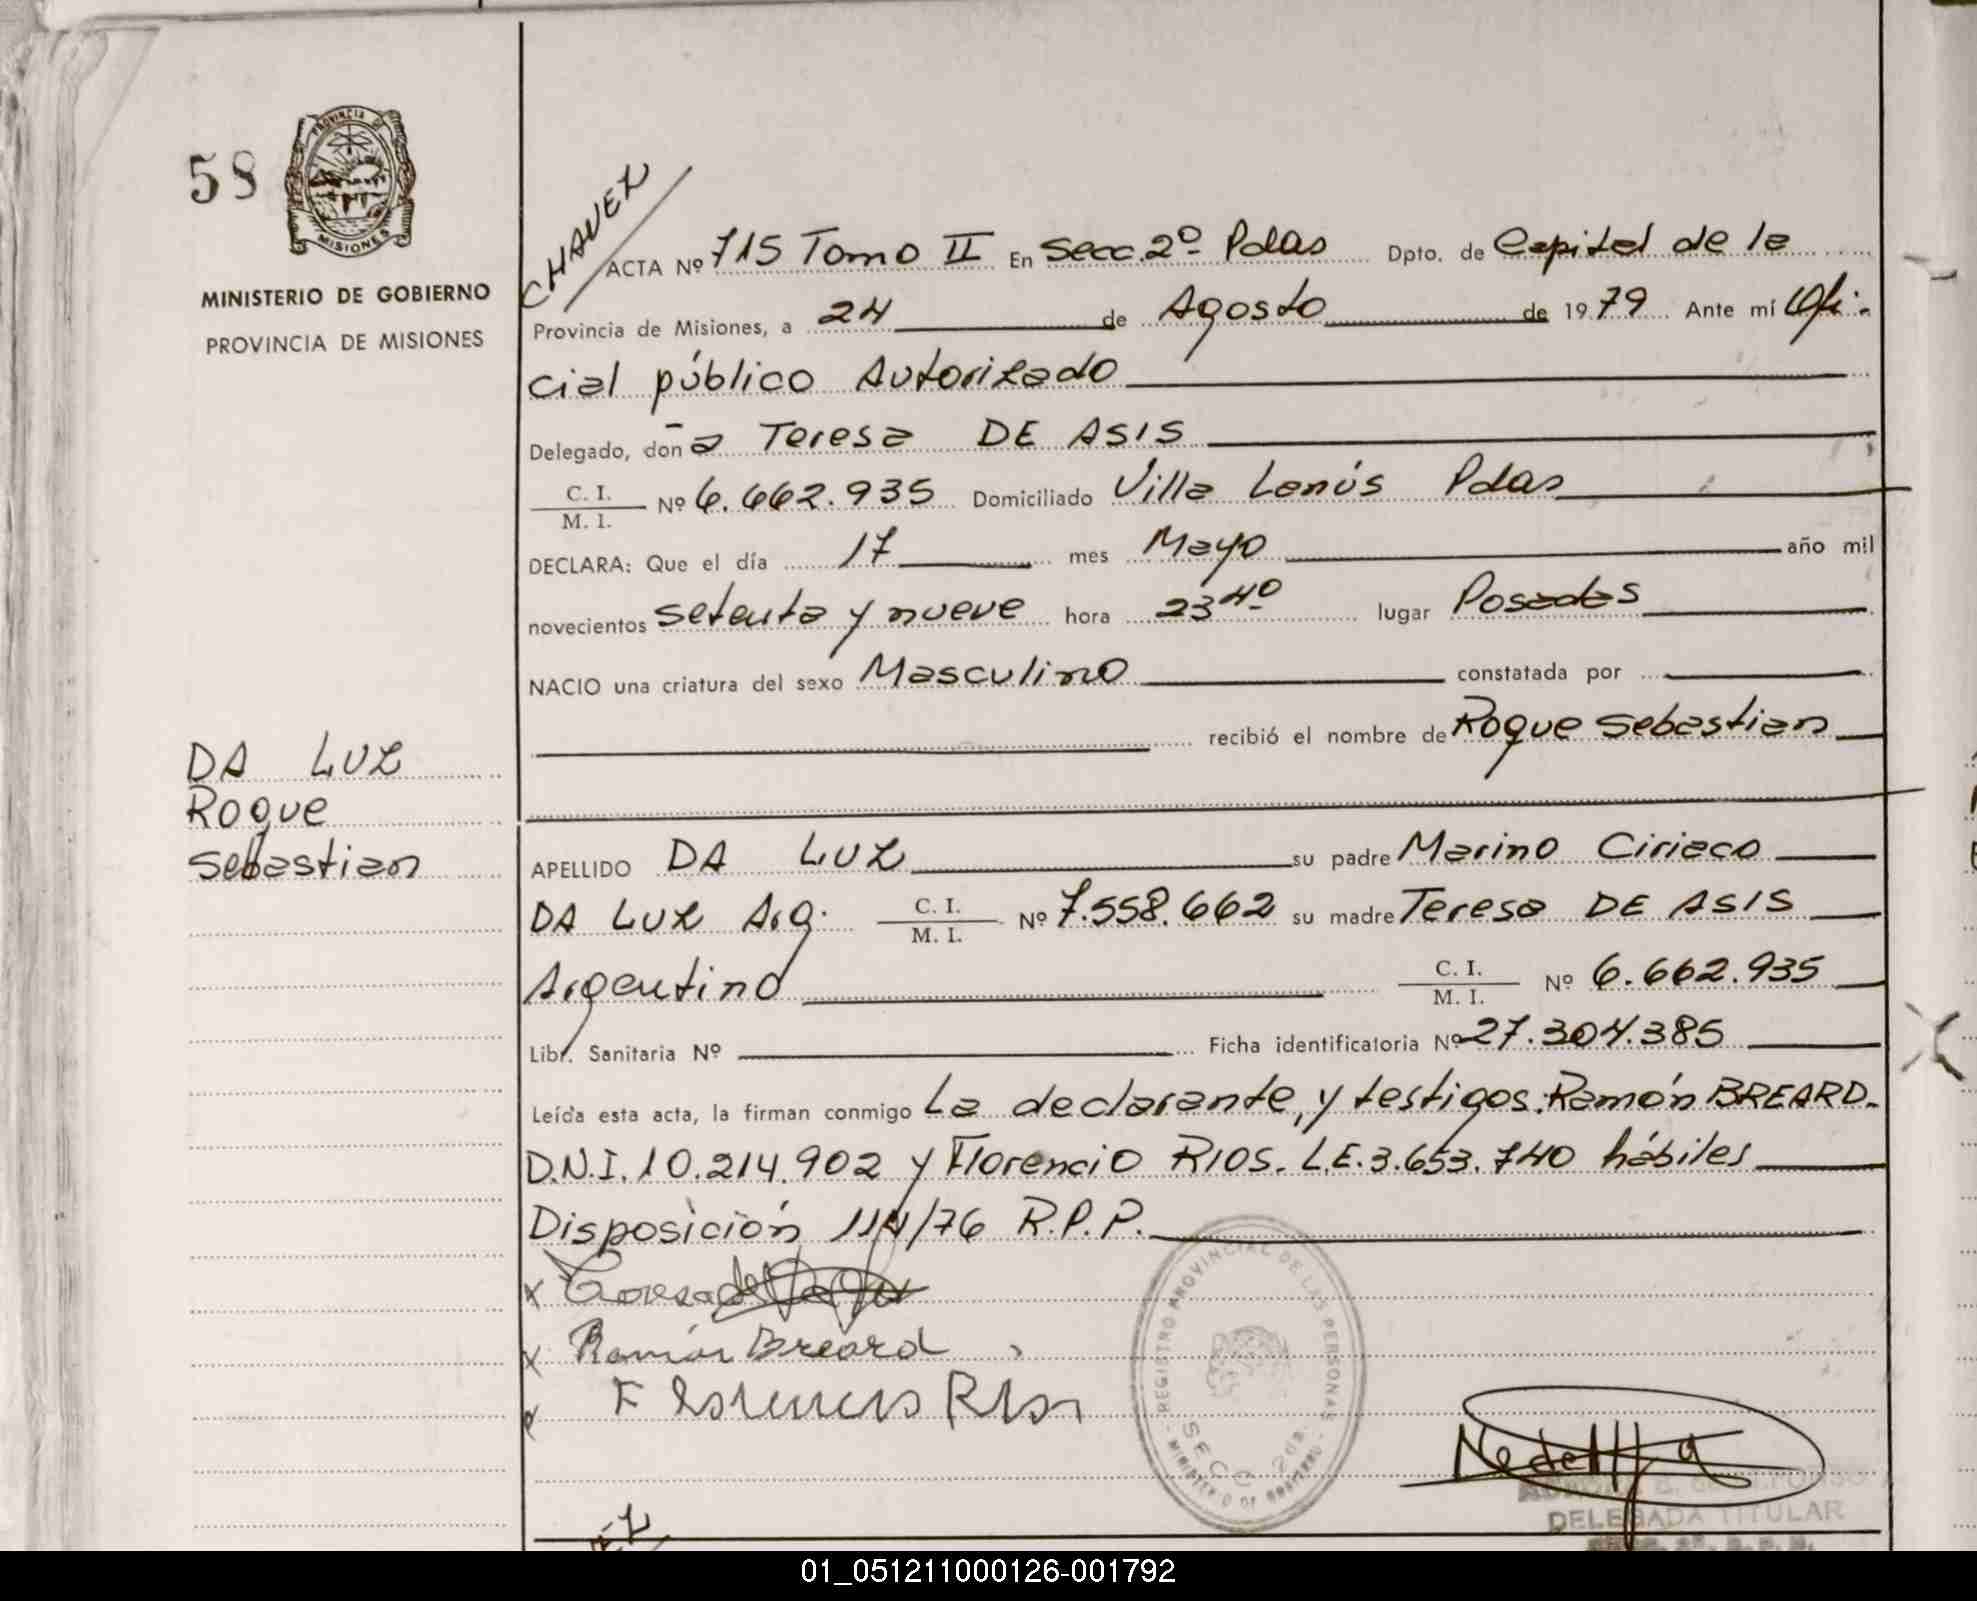 58
PROVINCIA DE
MISIONES
MINISTERIO DE GOBIERNO
PROVINCIA DE MISIONES
DA LUZ
Roque
Sebastian
CHAVEZ
ACTA Nº 715 Tomo II En Secc. 2º Pdas Dpto. de Capital de la
Provincia de Misiones, a 24 de Agosto de 1979 Ante mí Ofi-
cial público Autorizado
Delegado, doña Teresa DE ASIS
C. I.
M. I. Nº 6.662.935 Domiciliado Villa Lanús Pdas
DECLARA: Que el día 17 mes Mayo año mil
novecientos setenta y nueve hora 23 40 lugar Posadas
NACIO una criatura del sexo Masculino constatada por
recibió el nombre de Roque Sebastian
APELLIDO DA LUZ su padre Marino Ciriaco
DA LUZ Arg. C. I. M. I. Nº 7.558.662 su madre Teresa DE ASIS
Argentino C. I. M. I. Nº 6.662.935
Libr. Sanitaria Nº Ficha identificatoria Nº 27.304.385
Leída esta acta, la firman conmigo La declarante, y testigos: Ramón BREARD.
D.N.I. 10.214.902 y Florencio RIOS. L.E. 3.653.740 hábiles
Disposición 114/76 R.P.P.
x Teresa de
x Ramón Breard
Florencio Rios
REGISTRO PROVINCIAL DE LAS PERSONAS
SECC 2da.
MINISTERIO DE GOBIERNO
DELEGADA TITULAR
01_051211000126-001792